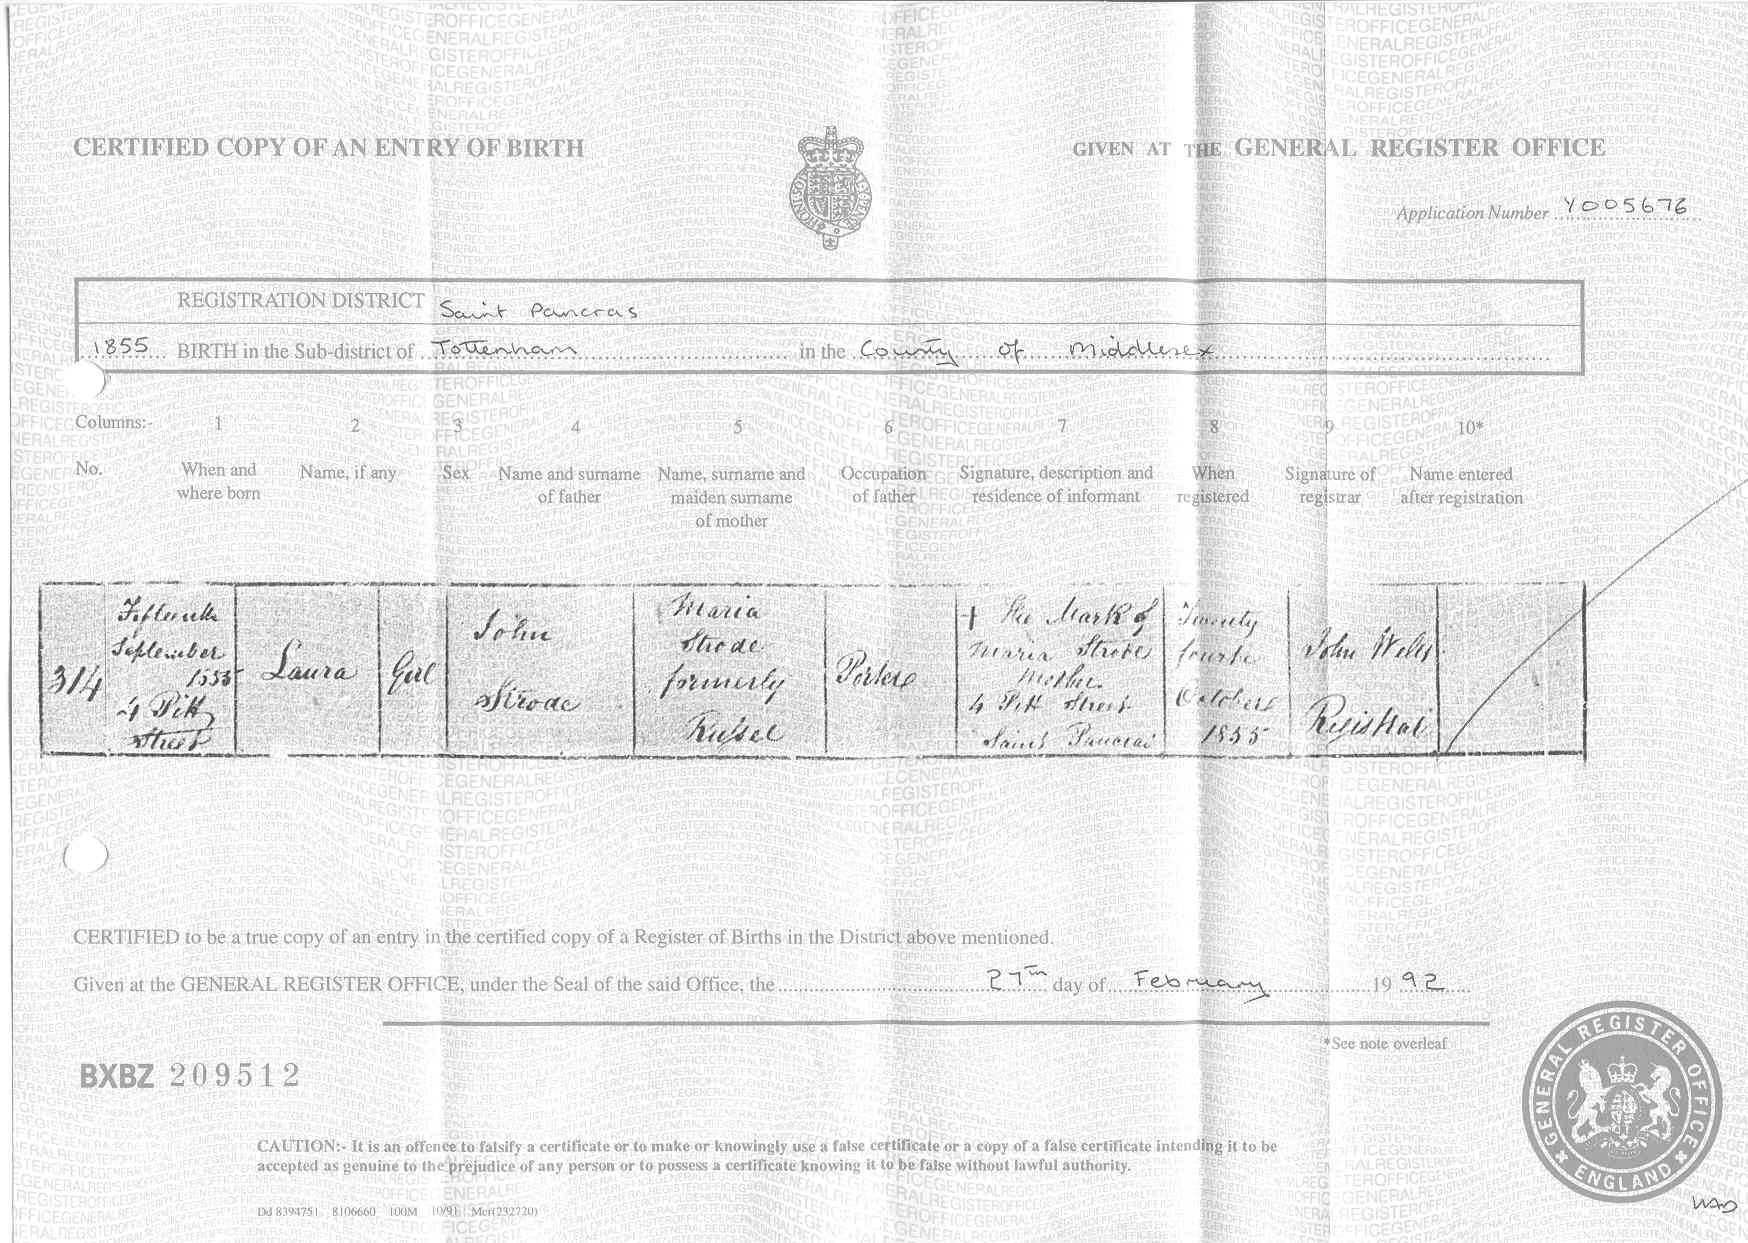 CERTIFIED COPY OF AN ENTRY OF BIRTH
GIVEN AT THE GENERAL REGISTER OFFICE
Application Number Y005676
REGISTRATION DISTRICT Saint Pancras
1855 BIRTH in the Sub-district of Tottenham in the County of Middlesex
Columns:- 1 2 3 4 5 6 7 8 9 10*
No.
When and
where born
Name, if any
Sex
Name and surname
of father
Name, surname and
maiden surname
of mother
Occupation
of father
Signature, description and
residence of informant
When
registered
Signature of
registrar
Name entered
after registration
314
Fifteenth
September
1855
4 Pitt
Street
Laura
Girl
John
Strode
Maria
Strode
formerly
Russel
Porter
+ The Mark of
Maria Strode
Mother
4 Pitt Street
Saint Pancras
Twenty
fourth
October
1855
John Wells
Registrar
CERTIFIED to be a true copy of an entry in the certified copy of a Register of Births in the District above mentioned.
Given at the GENERAL REGISTER OFFICE, under the Seal of the said Office, the 27th day of February 1992
*See note overleaf
BXBZ 209512
CAUTION:- It is an offence to falsify a certificate or to make or knowingly use a false certificate or a copy of a false certificate intending it to be
accepted as genuine to the prejudice of any person or to possess a certificate knowing it to be false without lawful authority.
Dd 8394751 8106660 100M 10/91 Mcr(232720)
GENERAL REGISTER OFFICE
ENGLAND